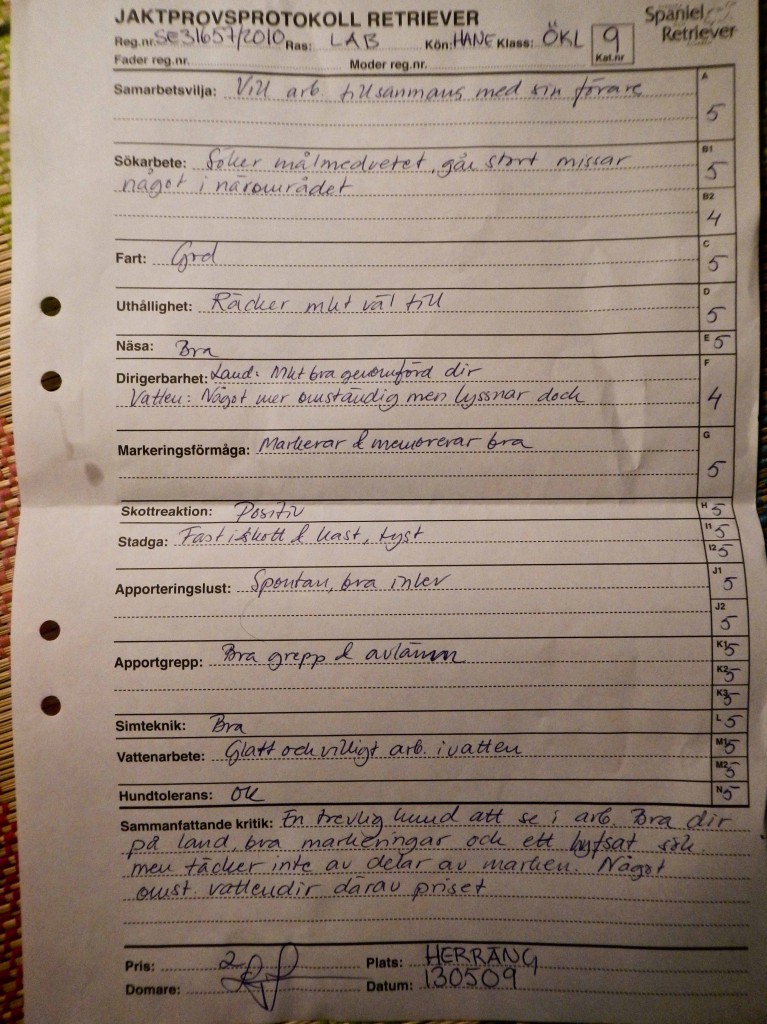 JAKTPROVSPROTOKOLL RETRIEVER
Spaniel Retriever
Reg.nr. SE31657/2010 Ras: LAB Kön: HANE Klass: ÖKL 9 Kat.nr
Fader reg.nr. Moder reg.nr.
Samarbetsvilja: Vill arb. tillsammans med sin förare A 5
Sökarbete: Söker målmedvetet, går stort missar B1 5
något i närområdet B2 4
Fart: Grd C 5
Uthållighet: Räcker mkt väl till D 5
Näsa: Bra E 5
Dirigerbarhet: Land: Mkt bra genomförd dir F
Vatten: Något mer omständig men lyssnar dock 4
Markeringsförmåga: Markerar & memorerar bra G 5
Skottreaktion: Positiv H 5
Stadga: Fast i skott & kast, tyst I1 5
I2 5
Apporteringslust: Spontan, bra inlev J1 5
J2 5
Apportgrepp: Bra grepp & avlämn K1 5
K2 5
K3 5
Simteknik: Bra L 5
Vattenarbete: Glatt och villigt arb. i vatten M1 5
M2 5
Hundtolerans: OK N 5
Sammanfattande kritik: En trevlig hund att se i arb. Bra dir
på land, bra markeringar och ett hyfsat sök
men täcker inte av delar av marken. Något
omst vattendir därav priset
Pris: 2 Plats: HERRÄNG
Domare: Datum: 130509